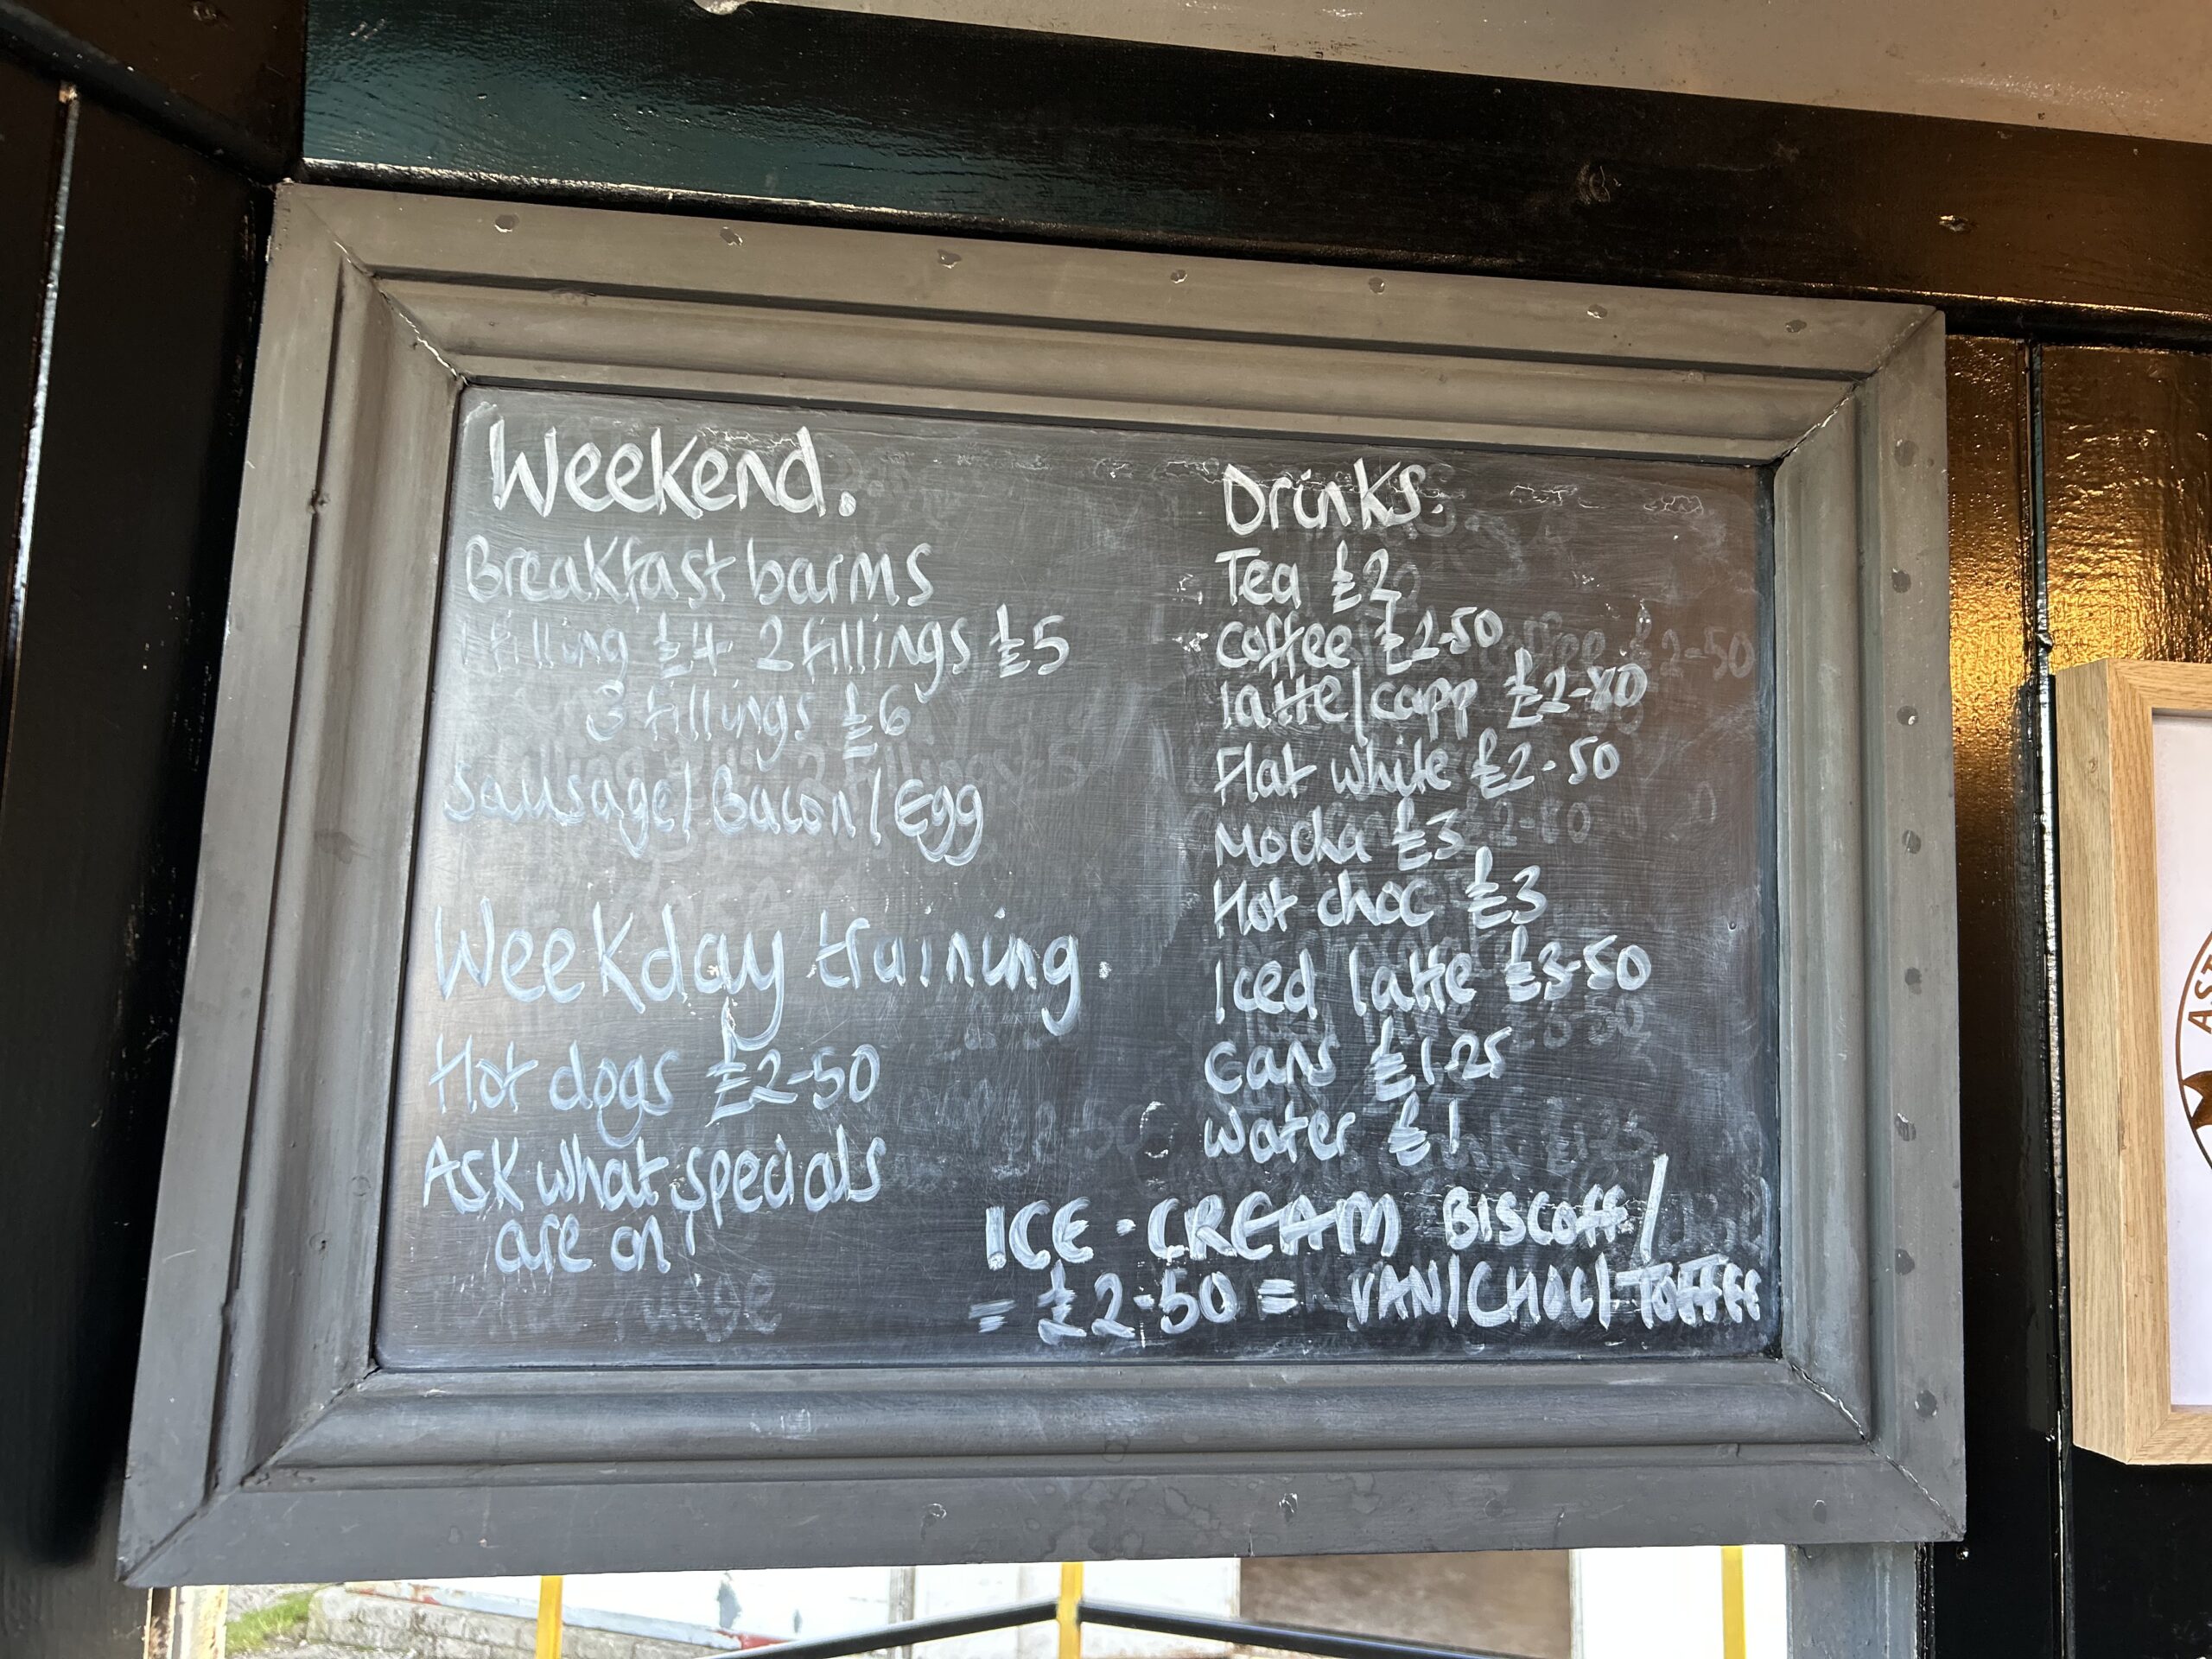 Weekend.
Breakfast barms
1 filling £4 2 fillings £5
3 fillings £6
Sausage/Bacon/Egg
Weekday training.
Hot dogs £2-50
Ask what specials
are on
Drinks.
Tea £2
Coffee £2-50
latte/capp £2-80
Flat white £2-50
Mocha £3
Hot choc £3
Iced latte £3-50
Cans £1.25
Water £1
ICE-CREAM BISCOFF/
= £2-50 = VAN/CHOC/TOFFEE